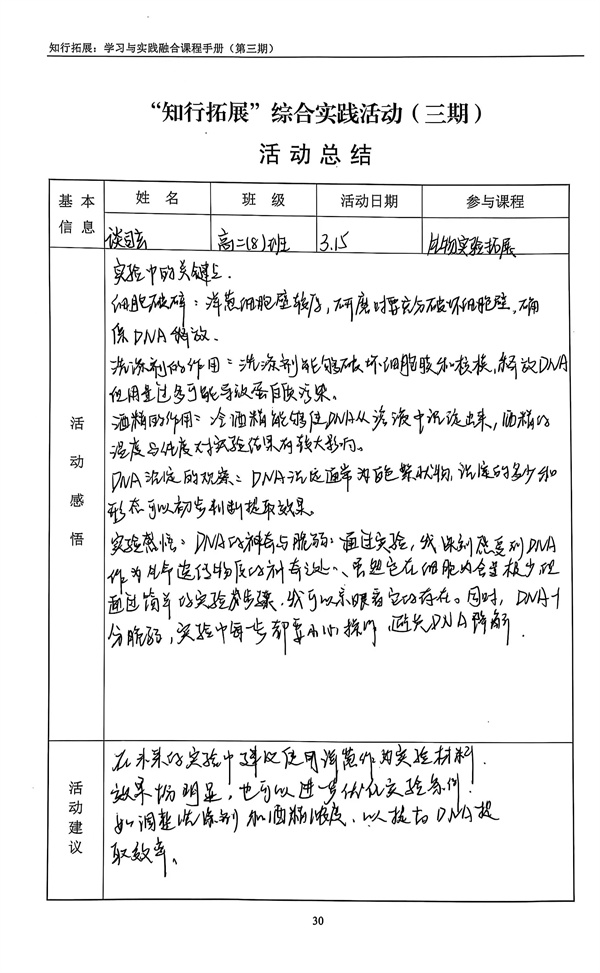 知行拓展：学习与实践融合课程手册（第三期）
“知行拓展”综合实践活动（三期）
活动总结
基本信息 姓名 班级 活动日期 参与课程
谈 高二(8)班 3.15 生物实验拓展
活动感悟
实验中的关键点.
细胞破碎：洋葱细胞壁较厚，研磨时要充分破坏细胞壁，确
保DNA释放。
洗涤剂的作用：洗涤剂能够破坏细胞膜和核膜，释放DNA
使用量过多可能导致蛋白质污染。
酒精的作用：冷酒精能够使DNA从溶液中沉淀出来，酒精的
温度与纯度对实验结果有较大影响。
DNA沉淀的观察：DNA沉淀通常为白色絮状物，沉淀的多少和
形态可以初步判断提取效果。
实验感悟：DNA的神奇与脆弱：通过实验，我深刻感受到DNA
作为生命遗传物质的神奇之处、虽然它在细胞内含量极少但
通过简单的实验步骤，我可以亲眼看它的存在。同时，DNA十
分脆弱，实验中每步都要小心操作，避免DNA降解.
活动建议
在未来的实验中建议使用洋葱作为实验材料.
效果均明显，也可以进一步优化实验条件.
如调整洗涤剂和酒精浓度，以提高DNA提
取效率。
30